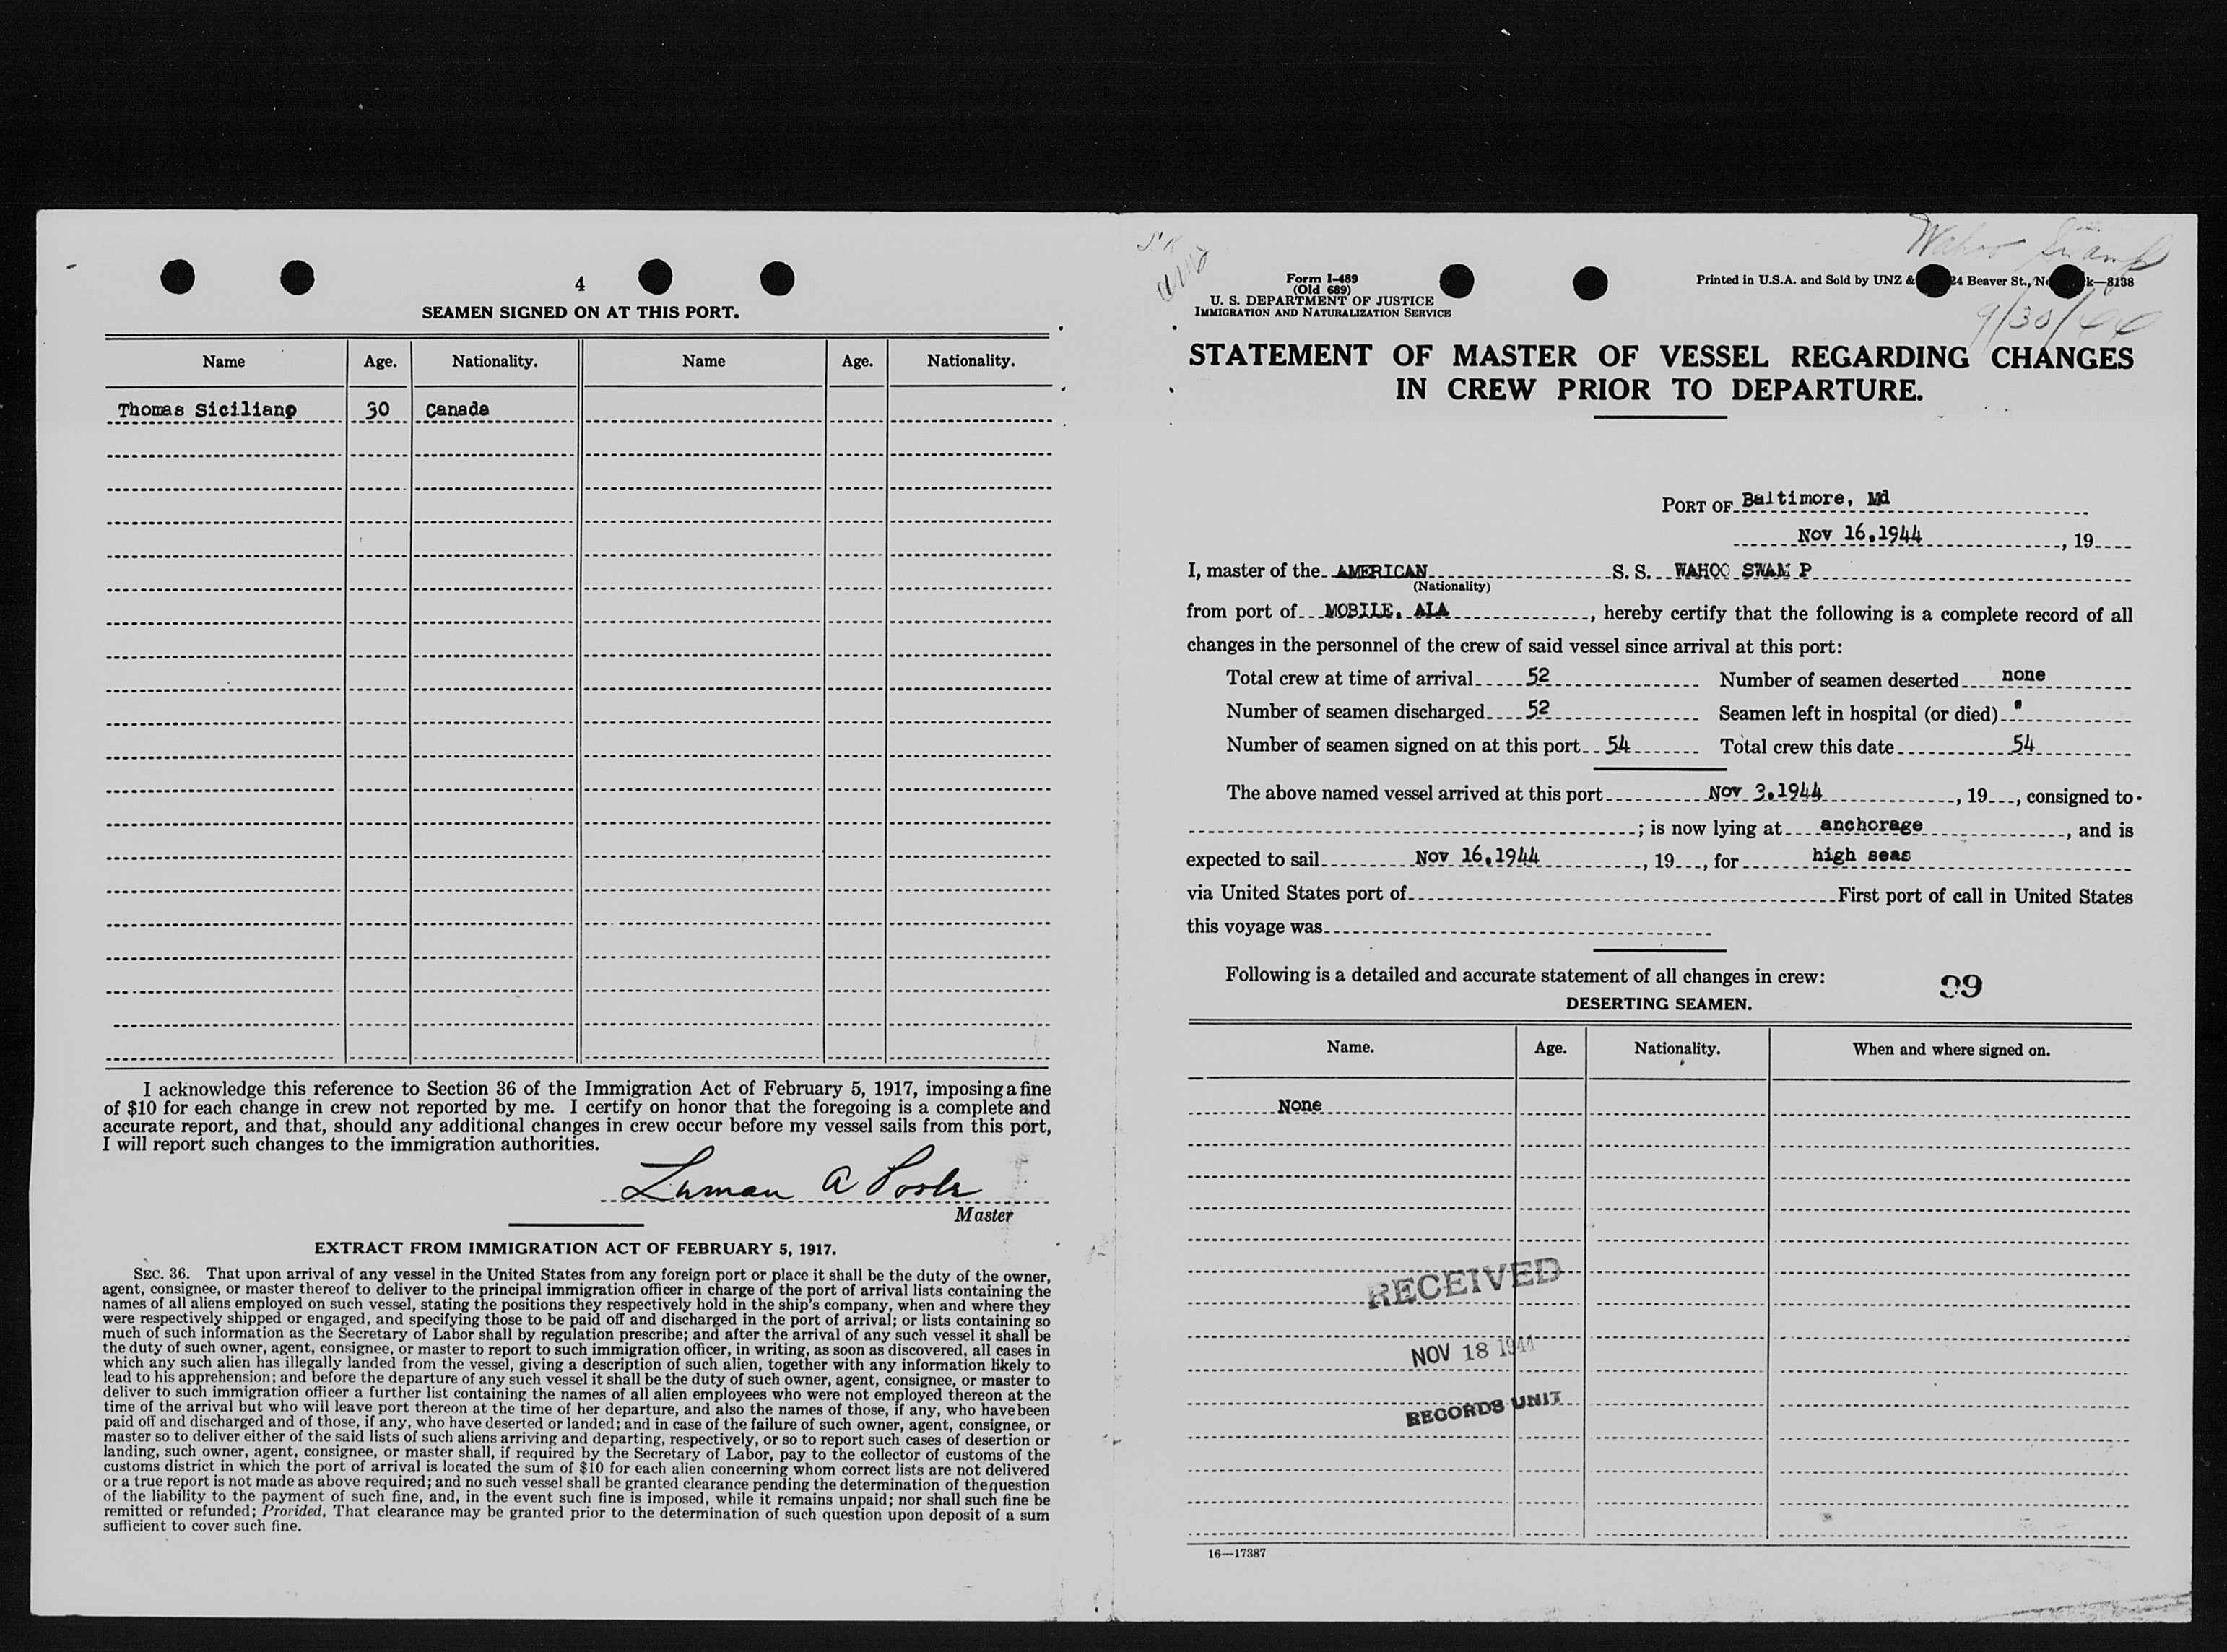 4
SEAMEN SIGNED ON AT THIS PORT.
Name Age. Nationality. Name Age. Nationality.
Thomas Siciliano 30 Canada
I acknowledge this reference to Section 36 of the Immigration Act of February 5, 1917, imposing a fine
of $10 for each change in crew not reported by me. I certify on honor that the foregoing is a complete and
accurate report, and that, should any additional changes in crew occur before my vessel sails from this port,
I will report such changes to the immigration authorities.
Luman A Poole
Master
EXTRACT FROM IMMIGRATION ACT OF FEBRUARY 5, 1917.
SEC. 36. That upon arrival of any vessel in the United States from any foreign port or place it shall be the duty of the owner,
agent, consignee, or master thereof to deliver to the principal immigration officer in charge of the port of arrival lists containing the
names of all aliens employed on such vessel, stating the positions they respectively hold in the ship's company, when and where they
were respectively shipped or engaged, and specifying those to be paid off and discharged in the port of arrival; or lists containing so
much of such information as the Secretary of Labor shall by regulation prescribe; and after the arrival of any such vessel it shall be
the duty of such owner, agent, consignee, or master to report to such immigration officer, in writing, as soon as discovered, all cases in
which any such alien has illegally landed from the vessel, giving a description of such alien, together with any information likely to
lead to his apprehension; and before the departure of any such vessel it shall be the duty of such owner, agent, consignee, or master to
deliver to such immigration officer a further list containing the names of all alien employees who were not employed thereon at the
time of the arrival but who will leave port thereon at the time of her departure, and also the names of those, if any, who have been
paid off and discharged and of those, if any, who have deserted or landed; and in case of the failure of such owner, agent, consignee, or
master so to deliver either of the said lists of such aliens arriving and departing, respectively, or so to report such cases of desertion or
landing, such owner, agent, consignee, or master shall, if required by the Secretary of Labor, pay to the collector of customs of the
customs district in which the port of arrival is located the sum of $10 for each alien concerning whom correct lists are not delivered
or a true report is not made as above required; and no such vessel shall be granted clearance pending the determination of the question
of the liability to the payment of such fine, and, in the event such fine is imposed, while it remains unpaid; nor shall such fine be
remitted or refunded; Provided, That clearance may be granted prior to the determination of such question upon deposit of a sum
sufficient to cover such fine.
Wahoo Swamp
9/30/44
Form I-489
(Old 689)
U. S. DEPARTMENT OF JUSTICE
IMMIGRATION AND NATURALIZATION SERVICE
Printed in U.S.A. and Sold by UNZ & 24 Beaver St., N k—8138
STATEMENT OF MASTER OF VESSEL REGARDING CHANGES
IN CREW PRIOR TO DEPARTURE.
PORT OF Baltimore, Md
Nov 16,1944, 19
I, master of the AMERICAN S. S. WAHOO SWAM P
(Nationality)
from port of MOBILE, ALA, hereby certify that the following is a complete record of all
changes in the personnel of the crew of said vessel since arrival at this port:
Total crew at time of arrival 52 Number of seamen deserted none
Number of seamen discharged 52 Seamen left in hospital (or died) "
Number of seamen signed on at this port 54 Total crew this date 54
The above named vessel arrived at this port Nov 3,1944, 19, consigned to
; is now lying at anchorage, and is
expected to sail Nov 16,1944, 19, for high seas
via United States port of First port of call in United States
this voyage was
Following is a detailed and accurate statement of all changes in crew:
99
DESERTING SEAMEN.
Name. Age. Nationality. When and where signed on.
None
RECEIVED
NOV 18 1944
RECORDS UNIT
16—17387